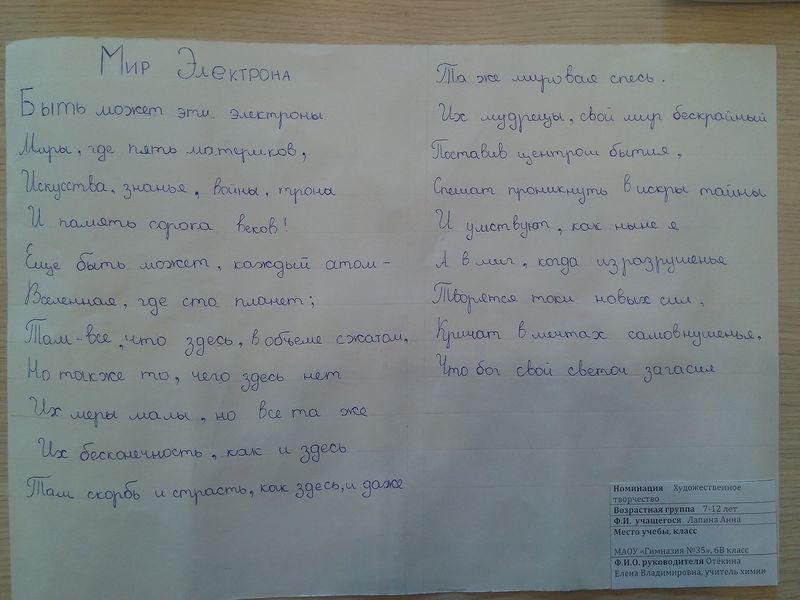 Мир Электрона
Быть может эти электроны
Миры, где пять материков,
Искусства, знанья, войны, трона
И память сорока веков!
Еще быть может, каждый атом -
Вселенная, где ста планет;
Там - все, что здесь, в объеме сжатом,
Но также то, чего здесь нет
Их меры малы, но все та же
Их бесконечность, как и здесь
Там скорбь и страсть, как здесь, и даже
Та же мировая спесь.
Их мудрецы, свой мир бескрайный
Поставив центром бытия,
Спешат проникнуть в искры тайны
И умствуют, как ныне я
А в миг, когда из разрушенья
Творятся токи новых сил,
Кричат в мечтах самовнушенья,
Что бог свой светоч загасил
Номинация Художественное
творчество
Возрастная группа 7-12 лет
Ф.И. учащегося Лапина Анна
Место учебы, класс
МАОУ «Гимназия №35», 6В класс
Ф.И.О. руководителя Отёкина
Елена Владимировна, учитель химии